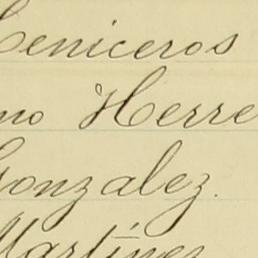 Ceniceros
no Herre
Gonzalez.
Martínez